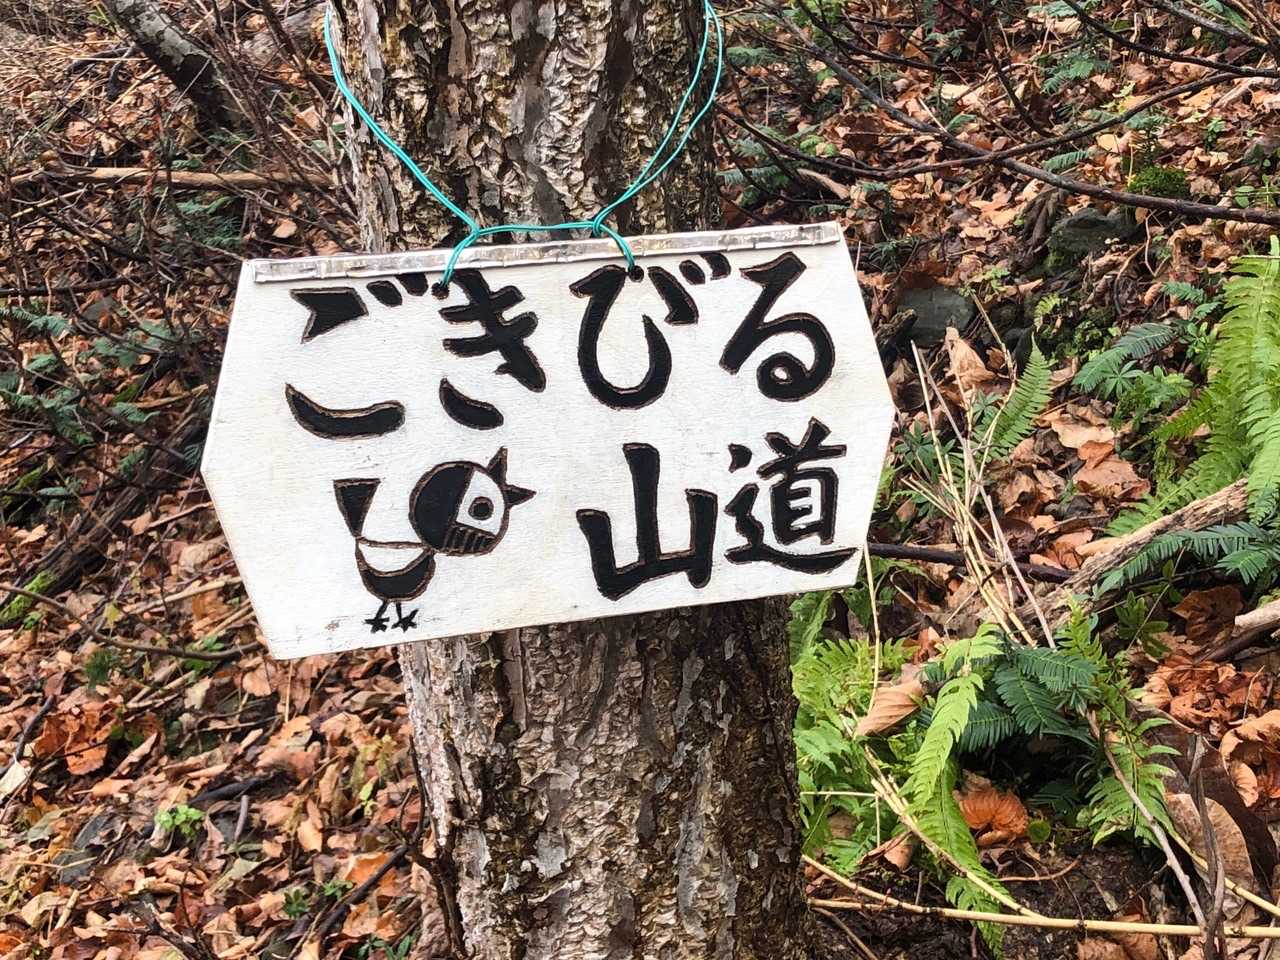 ごきびる
山道